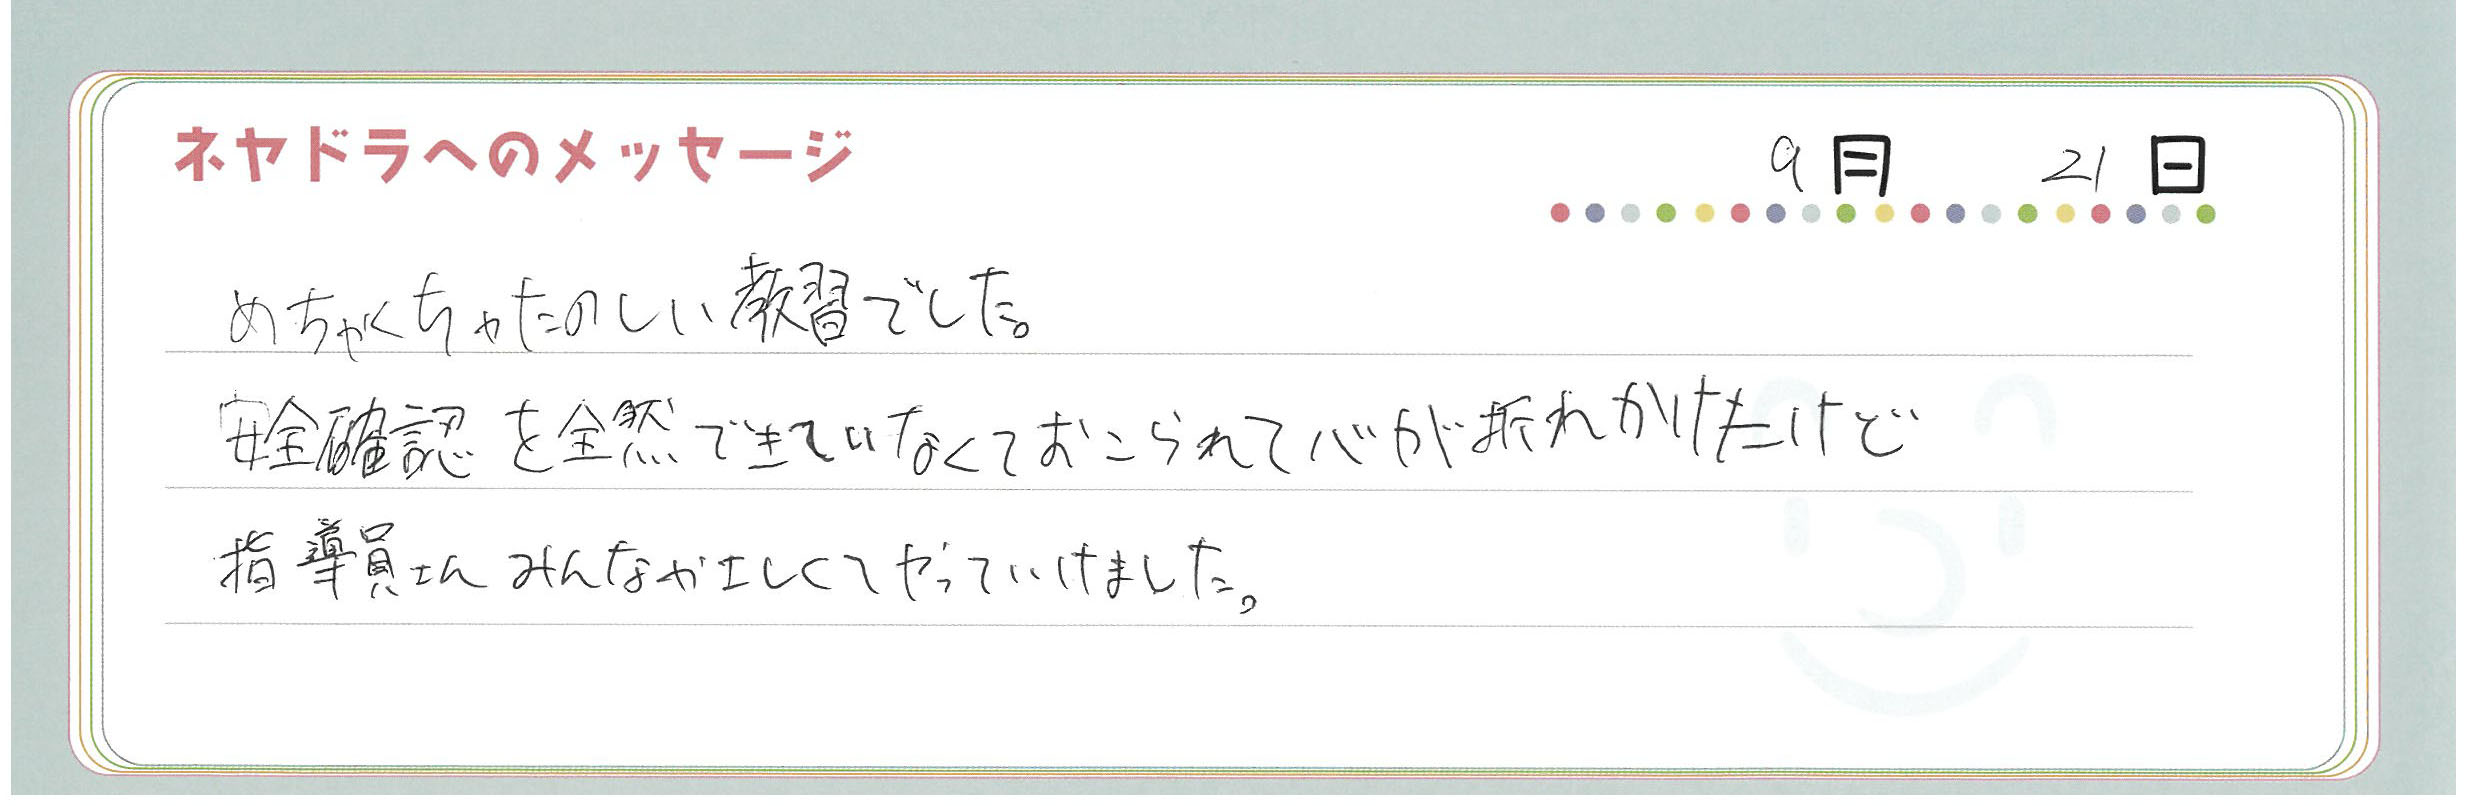 ネヤドラへのメッセージ
9月 21日
めちゃくちゃたのしい教習でした。
安全確認を全然できていなくておこられて心が折れかけたけど
指導員さんみんなやさしくてやっていけました。